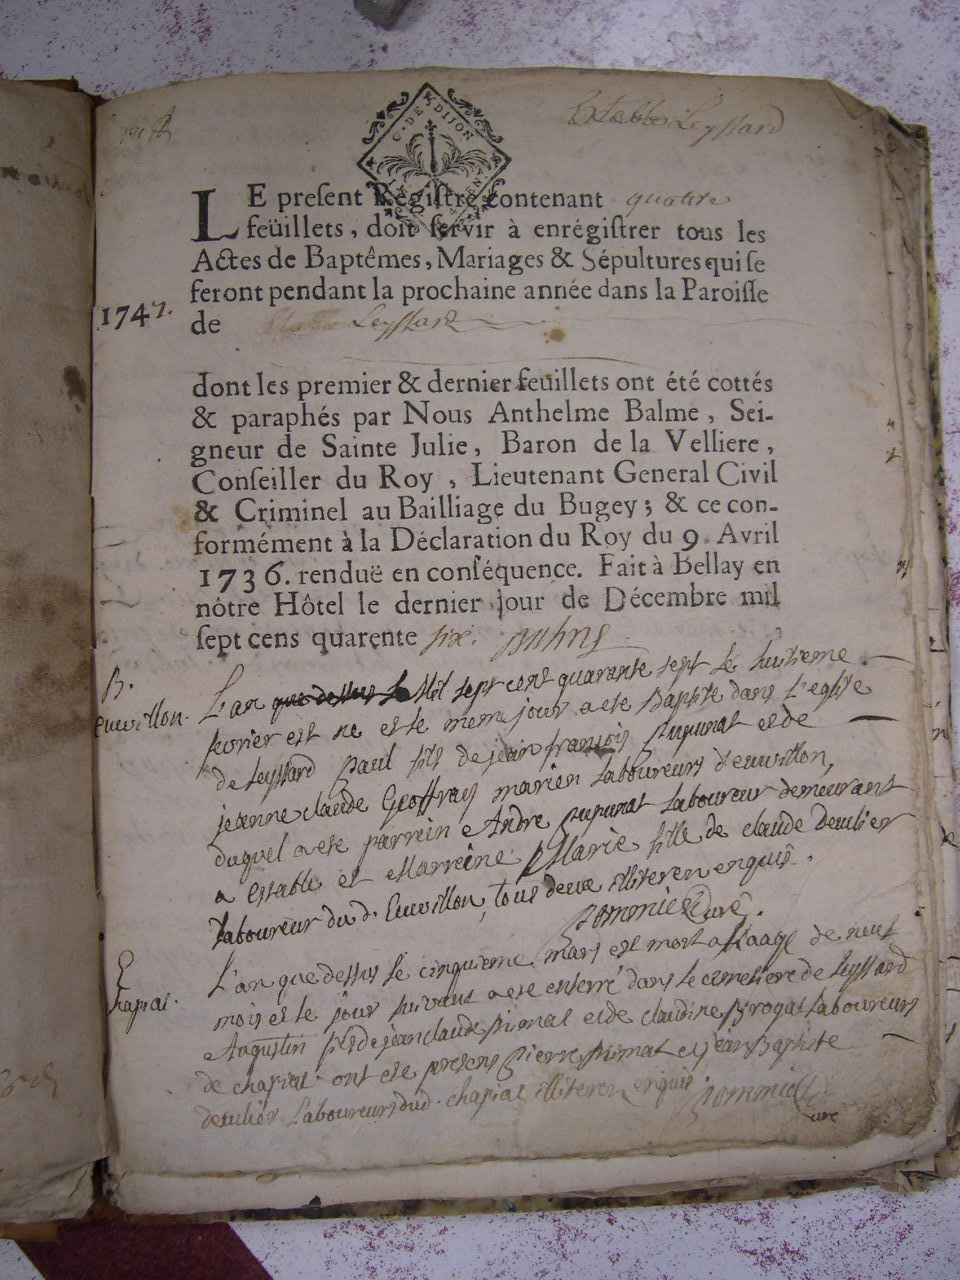 Estables Leyssard
C. DE DIJON
LE present Régistre contenant quatre
feüillets, doit servir à enrégistrer tous les
Actes de Baptêmes, Mariages & Sépultures qui se
feront pendant la prochaine année dans la Paroisse
1747.
de Leyssard
dont les premier & dernier feuillets ont été cottés
& paraphés par Nous Anthelme Balme, Sei-
gneur de Sainte Julie, Baron de la Velliere,
Conseiller du Roy, Lieutenant General Civil
& Criminel au Bailliage du Bugey; & ce con-
formément à la Déclaration du Roy du 9. Avril
1736. renduë en conséquence. Fait à Bellay en
nôtre Hôtel le dernier jour de Décembre mil
sept cens quarente six.
B.
Euvillon.
L'an que dessus le Mil sept cent quarante sept le huitieme
fevrier est né et le meme jour a ete Baptisé dans l'eglise
de Leyssard paul fils de jean françois pupunat et de
jeanne claude Geoffray mariés Laboureurs d'euvillon,
duquel a ete parrein Andre pupunat Laboureur demeurant
a estables et Marreine Marie fille de claude deulier
Laboureur dud. Euvillon, tous deux illiteres enquis.
pommier Curé.
chapiat.
L'an que dessus le cinquieme mars est mort a l'aage de neuf
mois et le jour suivant a ete enterré dans le cemetiere de Leyssard
Augustin fils de jean claude primat et de claudine Brogat Laboureurs
de chapiat ont ete presens pierre primat et jean Baptiste
deulier Laboureurs dud. chapiat illiteres enquis pommier
Curé